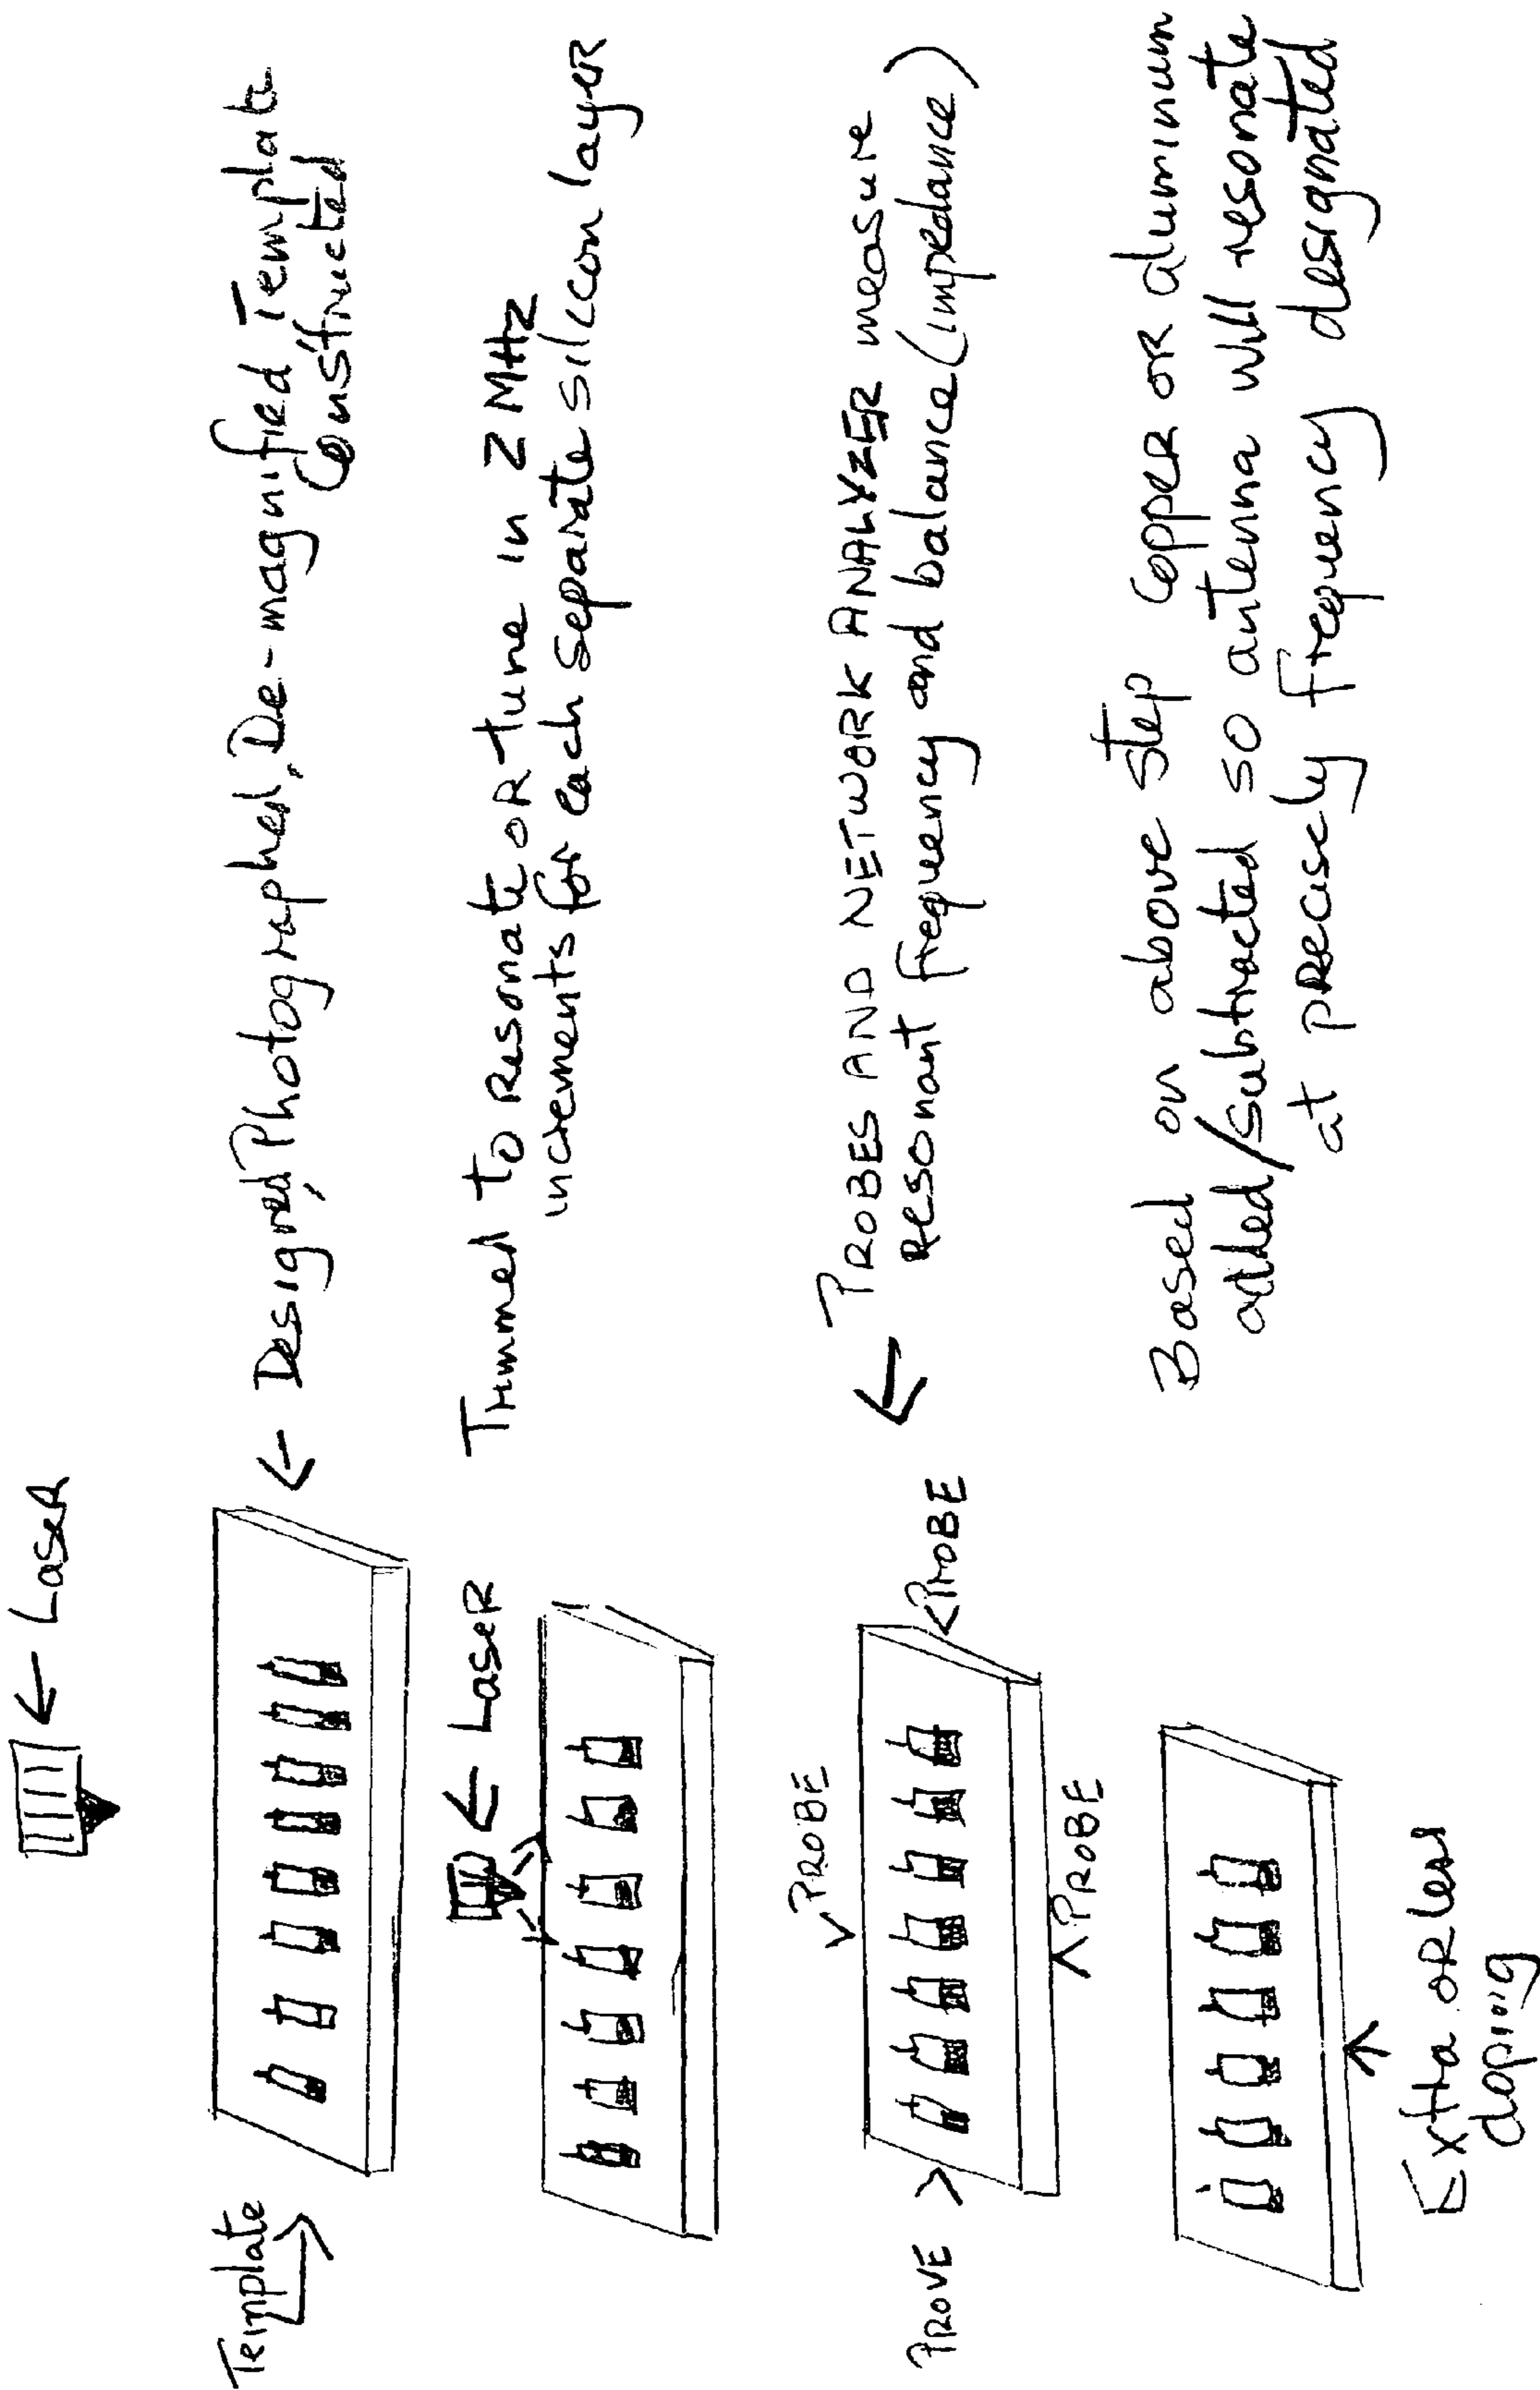 ← Laser
Template
← Designed, Photographed, De-magnified Template
Constructed
← Laser
Trimmed to Resonate or tune in 2 MHz
increments for each separate silicon layer
PROBE
PROVE >
< PROBE
PROBE
← PROBES AND NETWORK ANALYZER measure
resonant frequency and balance (impedance)
Extra or less
doping
Based on above step copper or aluminum
added/subtracted so antenna will resonate
at precisely frequency designated